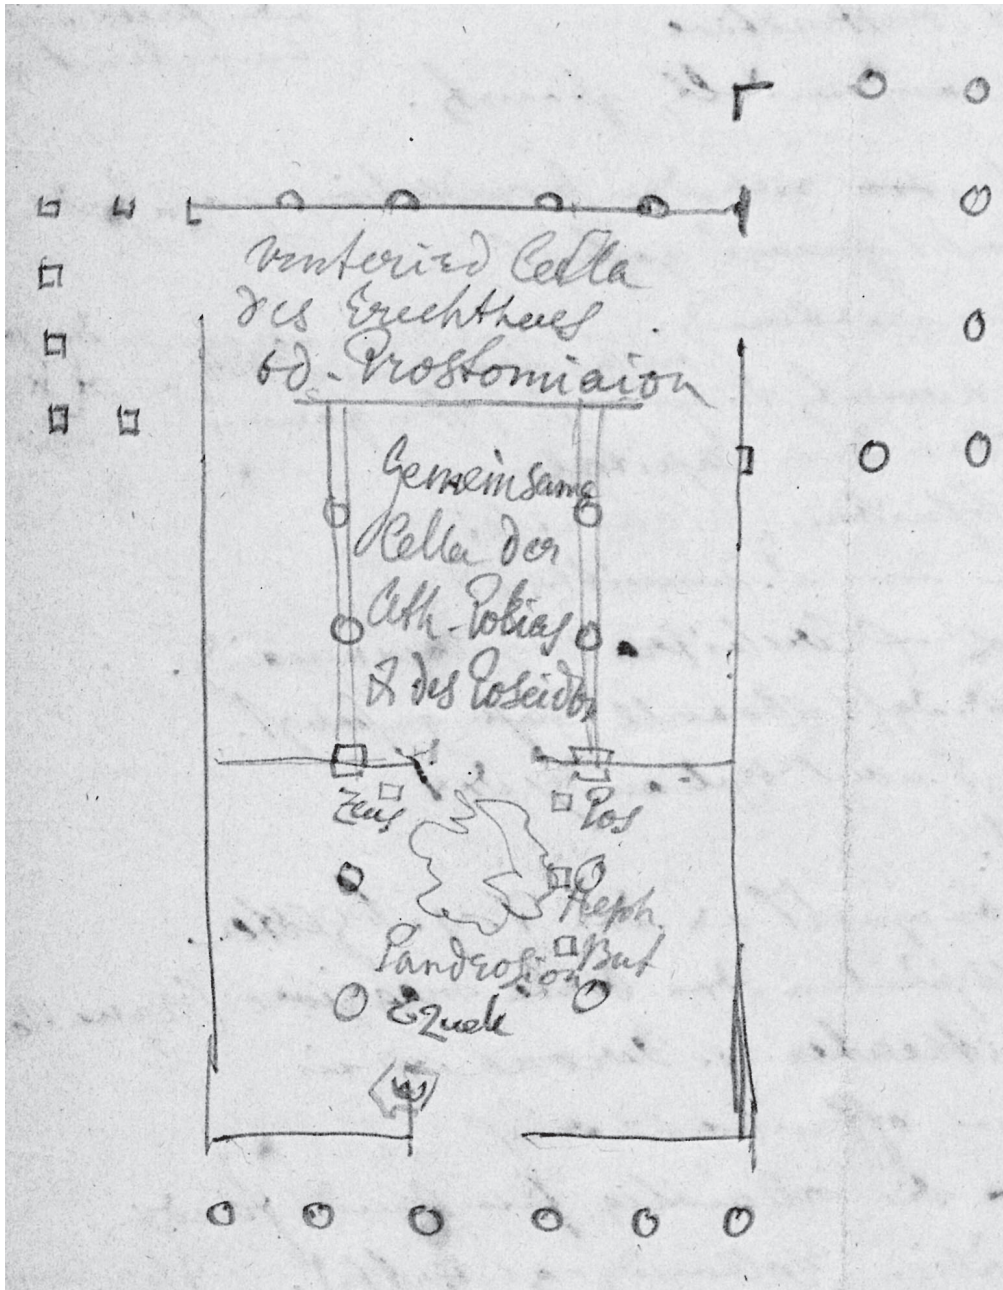 Cella
des Erechtheus
od. Prostomiaion
Gemeinsame
Cella der
Ath. Polias
& des Poseidon
Zeus
Pos
Heph
But
Pandrosion